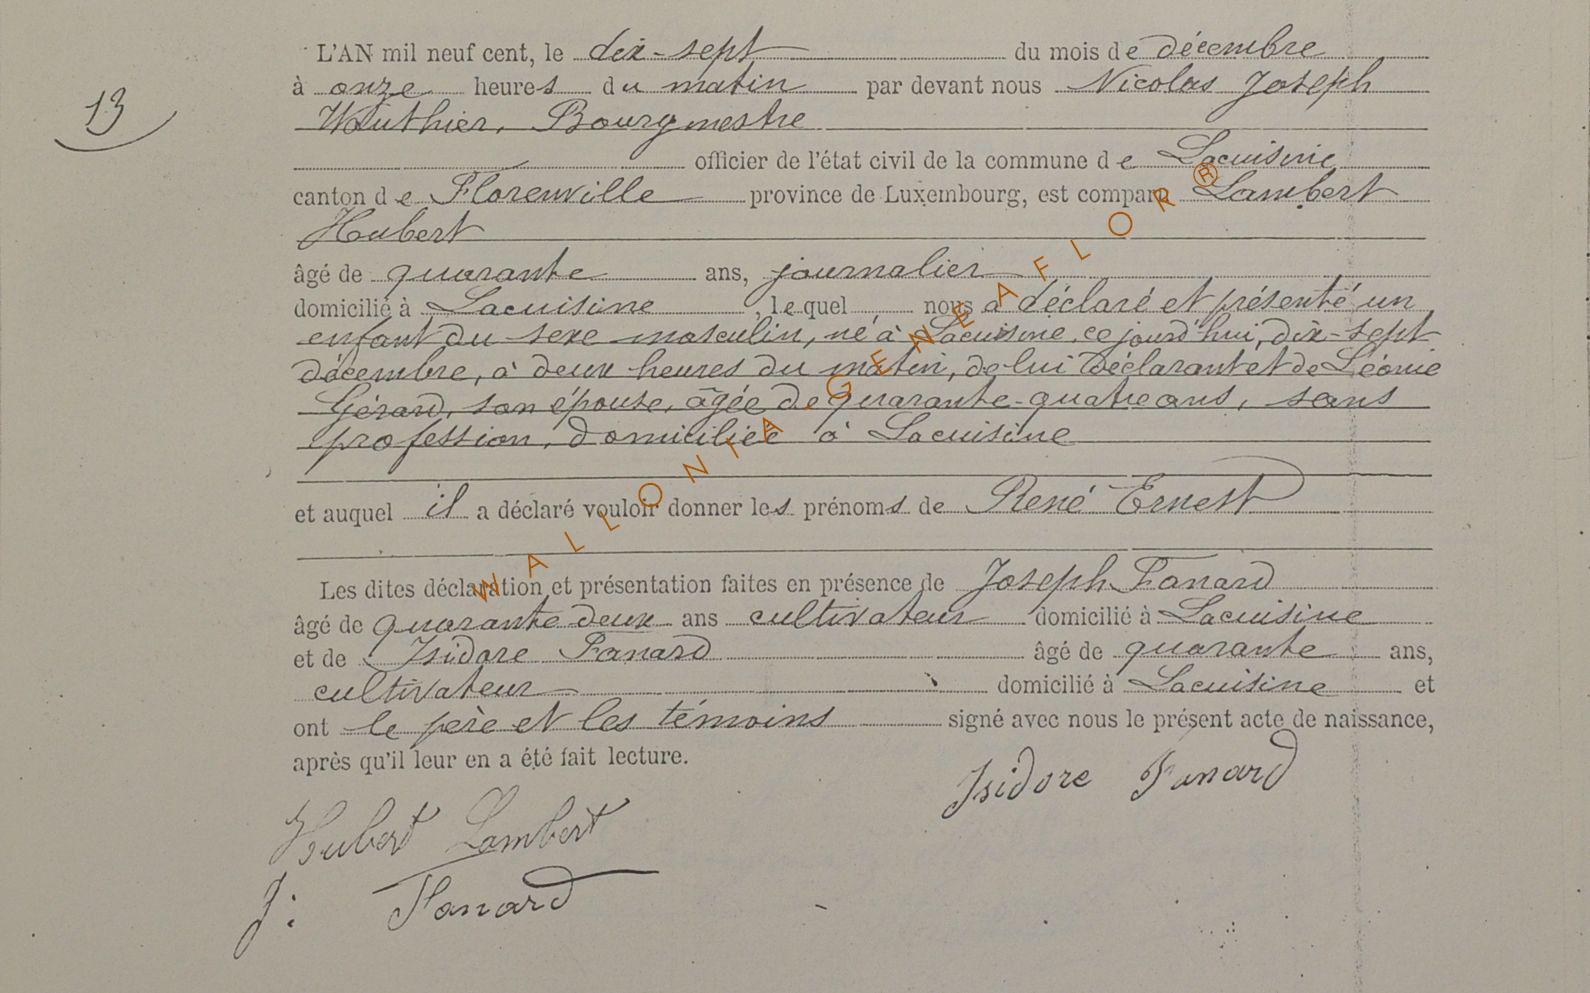 13
L'AN mil neuf cent, le dix-sept du mois de décembre
à onze heures du matin par devant nous Nicolas Joseph
Wauthier, Bourgmestre
officier de l'état civil de la commune de Lacuisine
canton de Florenville province de Luxembourg, est comparu Lambert
Hubert
âgé de quarante ans, journalier
domicilié à Lacuisine, lequel, nous a déclaré et présenté un
enfant du sexe masculin, né à Lacuisine, ce jourd'hui, dix-sept
décembre, à deux heures du matin, de lui déclarant et de Léonie
Gérard, son épouse, âgée de quarante-quatre ans, sans
profession, domiciliée à Lacuisine
et auquel il a déclaré vouloir donner les prénoms de René Ernest
Les dites déclaration et présentation faites en présence de Joseph Fanard
âgé de quarante deux ans cultivateur domicilié à Lacuisine
et de Isidore Fanard âgé de quarante ans,
cultivateur domicilié à Lacuisine et
ont le père et les témoins signé avec nous le présent acte de naissance,
après qu'il leur en a été fait lecture.
Isidore Fanard
Hubert Lambert
J: Fanard
WALLONIA GENEAFLOR ®